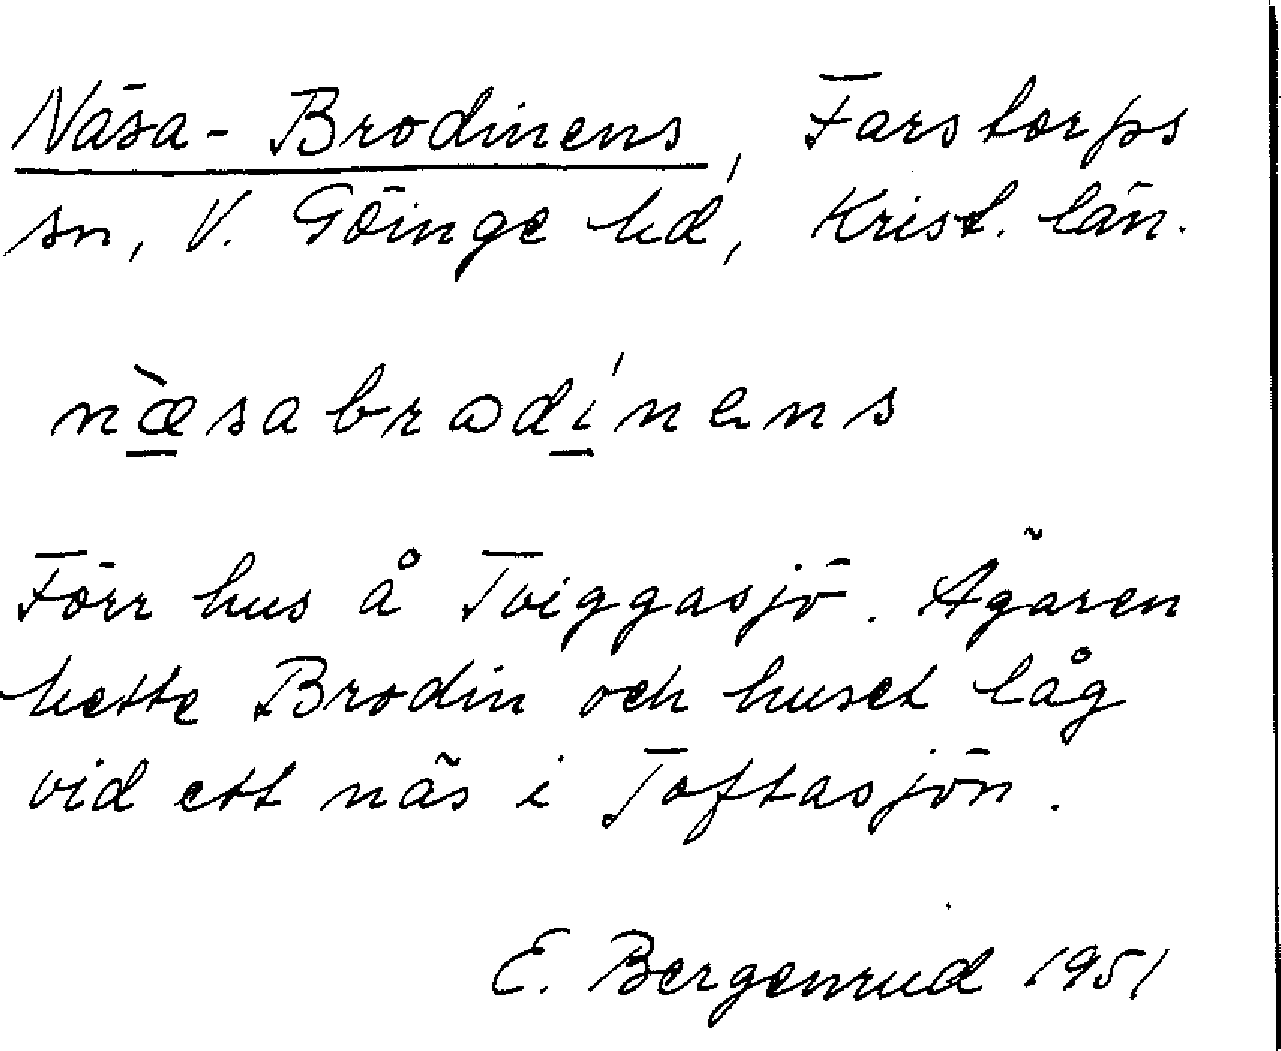 Näsa-Brodinens, Farstorps
sn, V. Göinge hd, Krist. län.
næ̀sabrodínens
Förr hus å Tviggasjö. Ägaren
hette Brodin och huset låg
vid ett näs i Toftasjön.
E. Bergenrud 1951